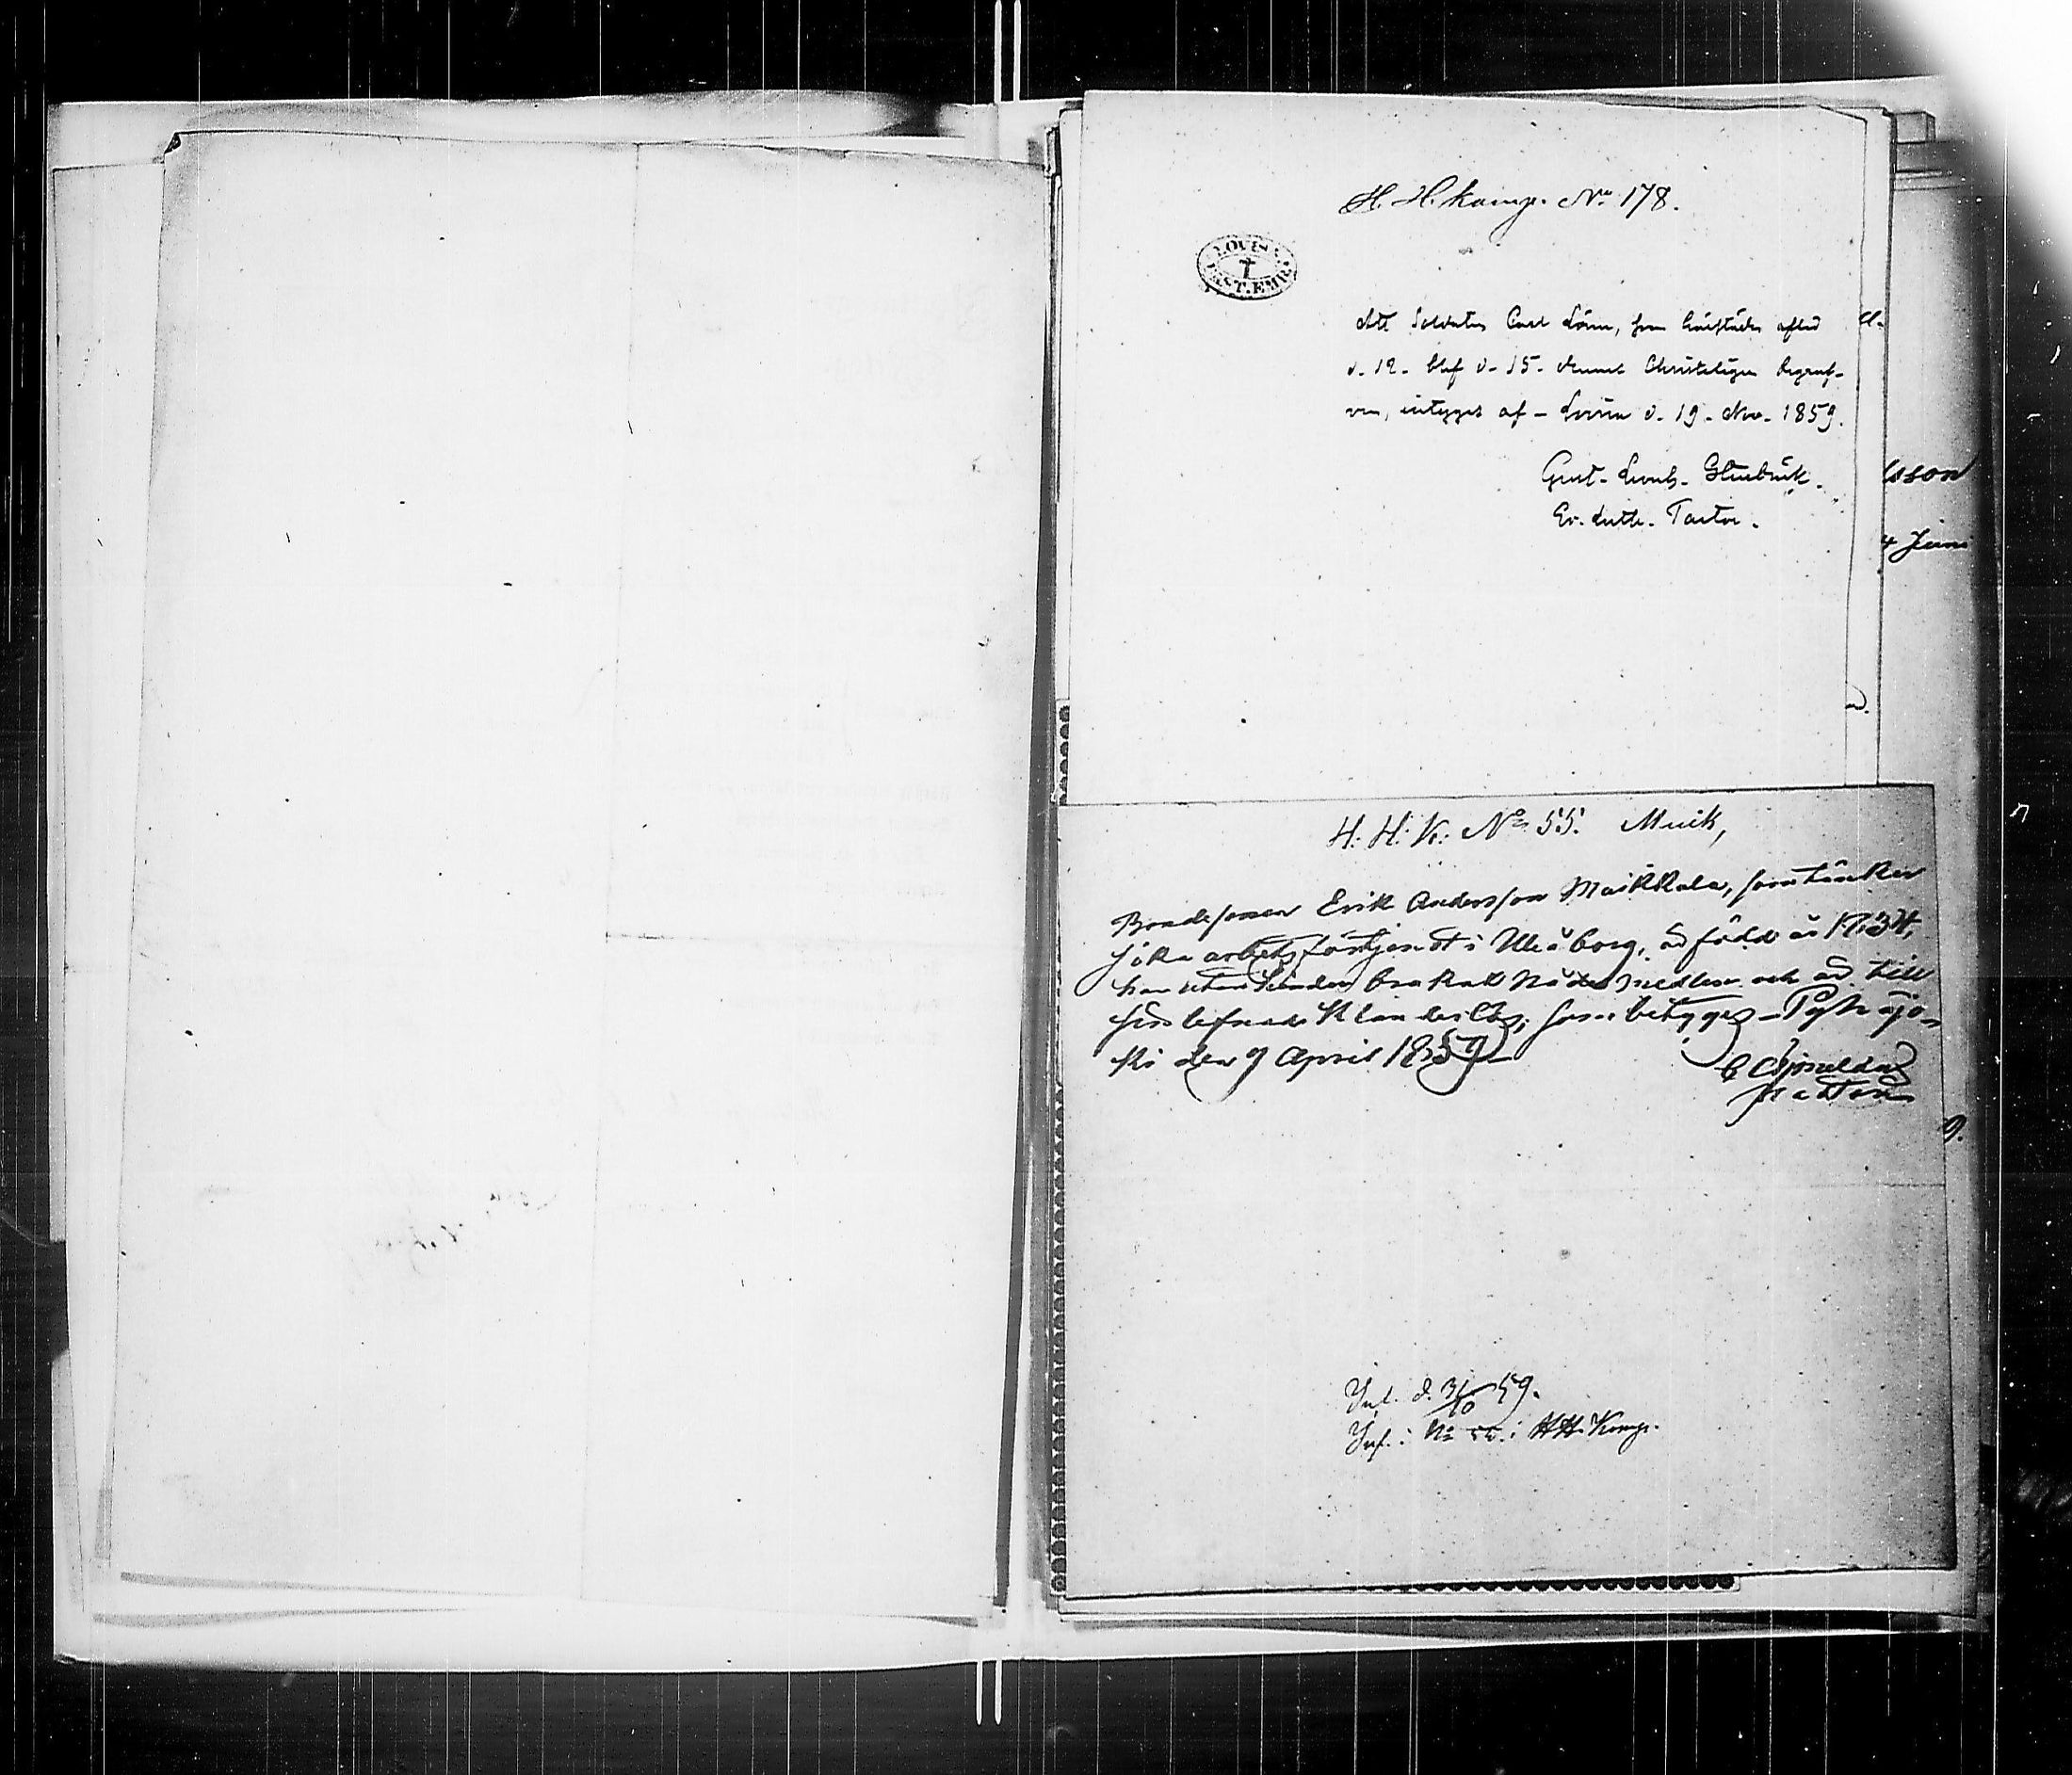 H. H. komp. No. 178.
LOUIS
PAST. EMB.
Att Soldaten Carl Lönn, som härstädes afled
d. 12. blef d. 15. dennes Christeligen begraf-
ven, intygas af - Lovisa d. 19. Nov. 1859.
Gust.
Ev. Luth. Pastor.
sson
4 Juni
H. H. K. No 55. Musik,
Bondesonen Erik Andersson Maikkala, som tänker
söka arbetsförtjenst i Uleåborg, är född år 1834,
har utan hinder brukat Nådemedlen och är till
sin lefnad klanderlös, som betygas - Pyhäjo-
ki den 9 April 1859
Pastor
Inl. d. 31/10 59.
Inf. i No 55. i HH. Komp.